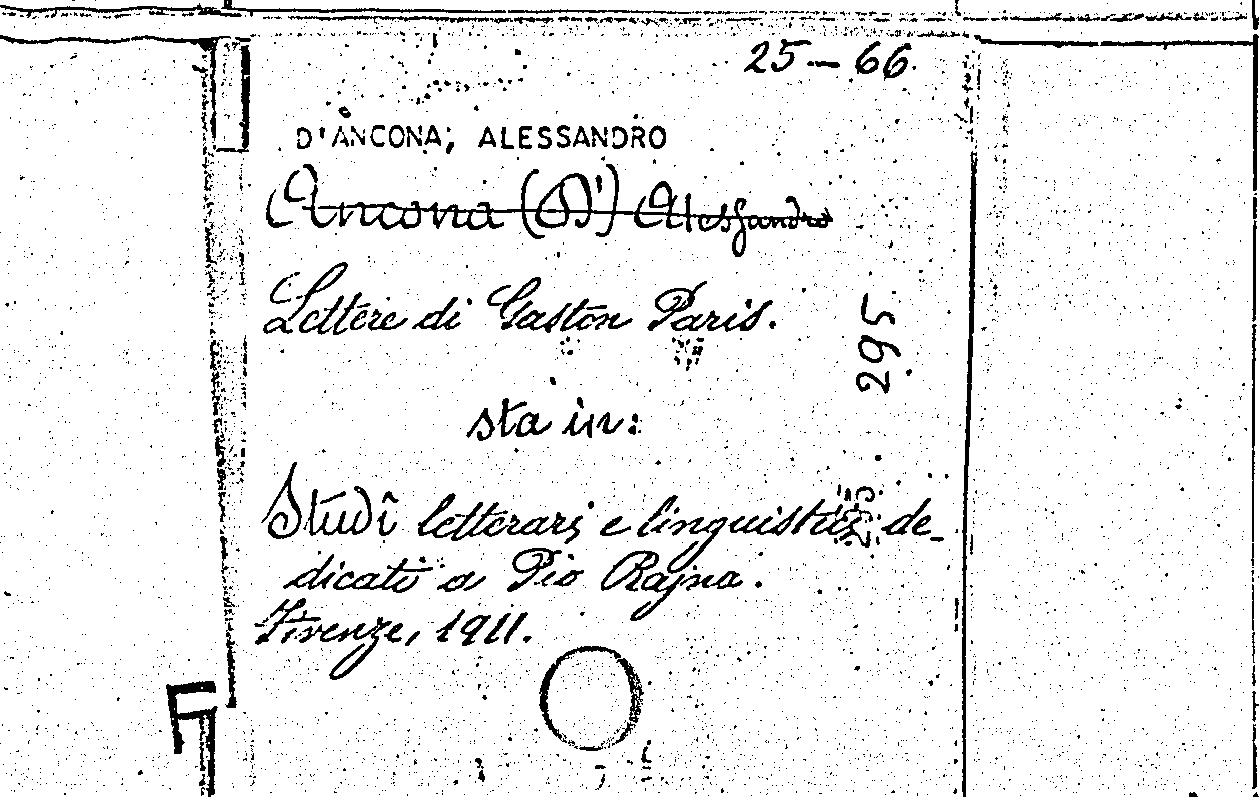 25-66.
D'ANCONA, ALESSANDRO
Ancona (D') Alessandro
Lettere di Gaston Paris.
295
sta in:
Studî letterarj e linguistici de-
dicati a Pio Rajna.
Firenze, 1911.